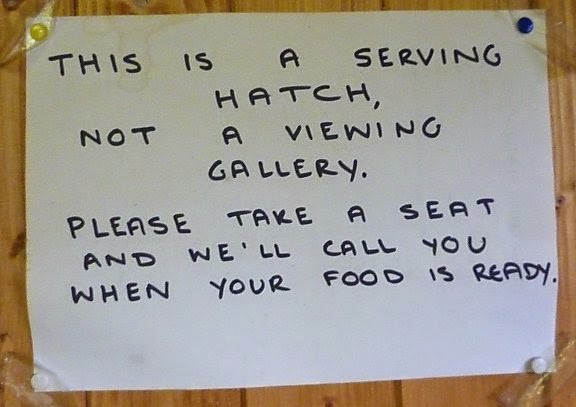 THIS IS A SERVING
HATCH,
NOT A VIEWING
GALLERY.
PLEASE TAKE A SEAT
AND WE'LL CALL YOU
WHEN YOUR FOOD IS READY.